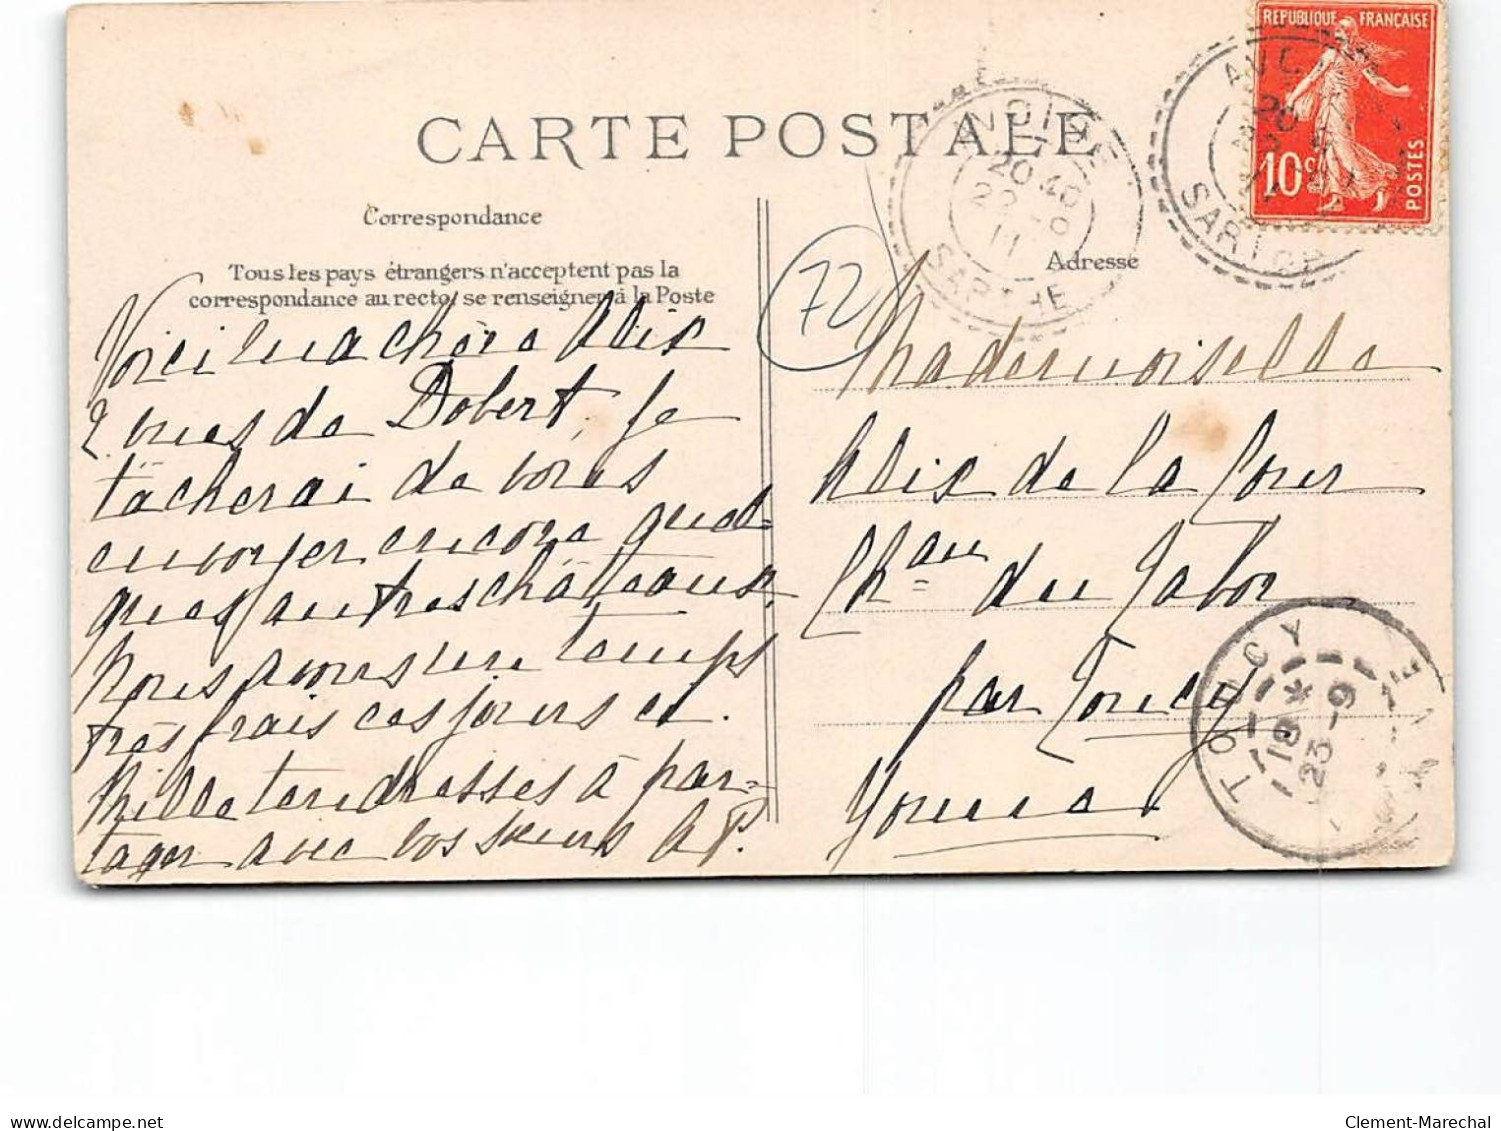 REPUBLIQUE FRANÇAISE
10c
POSTES
CARTE POSTALE
AVOISE
20 40
22-9
11
SARTHE
SARTHE
Correspondance
Adresse
Tous les pays étrangers n'acceptent pas la
correspondance au recto, se renseigner à la Poste
72
Voici ma chère Alix
2 vues de Dobert, je
tâcherai de vous
envoyer encore quel-
ques autres châteaux.
Nous avons un temps
très frais ces jours ci.
Mille tendresses à par-
tager avec vos sœurs A P.
Mademoiselle
Alix de la Cour
Chau du Tabor
par Toucy
Yonne
TOUCY
18 *
23-9
YONNE
www.delcampe.net
Clement-Marechal